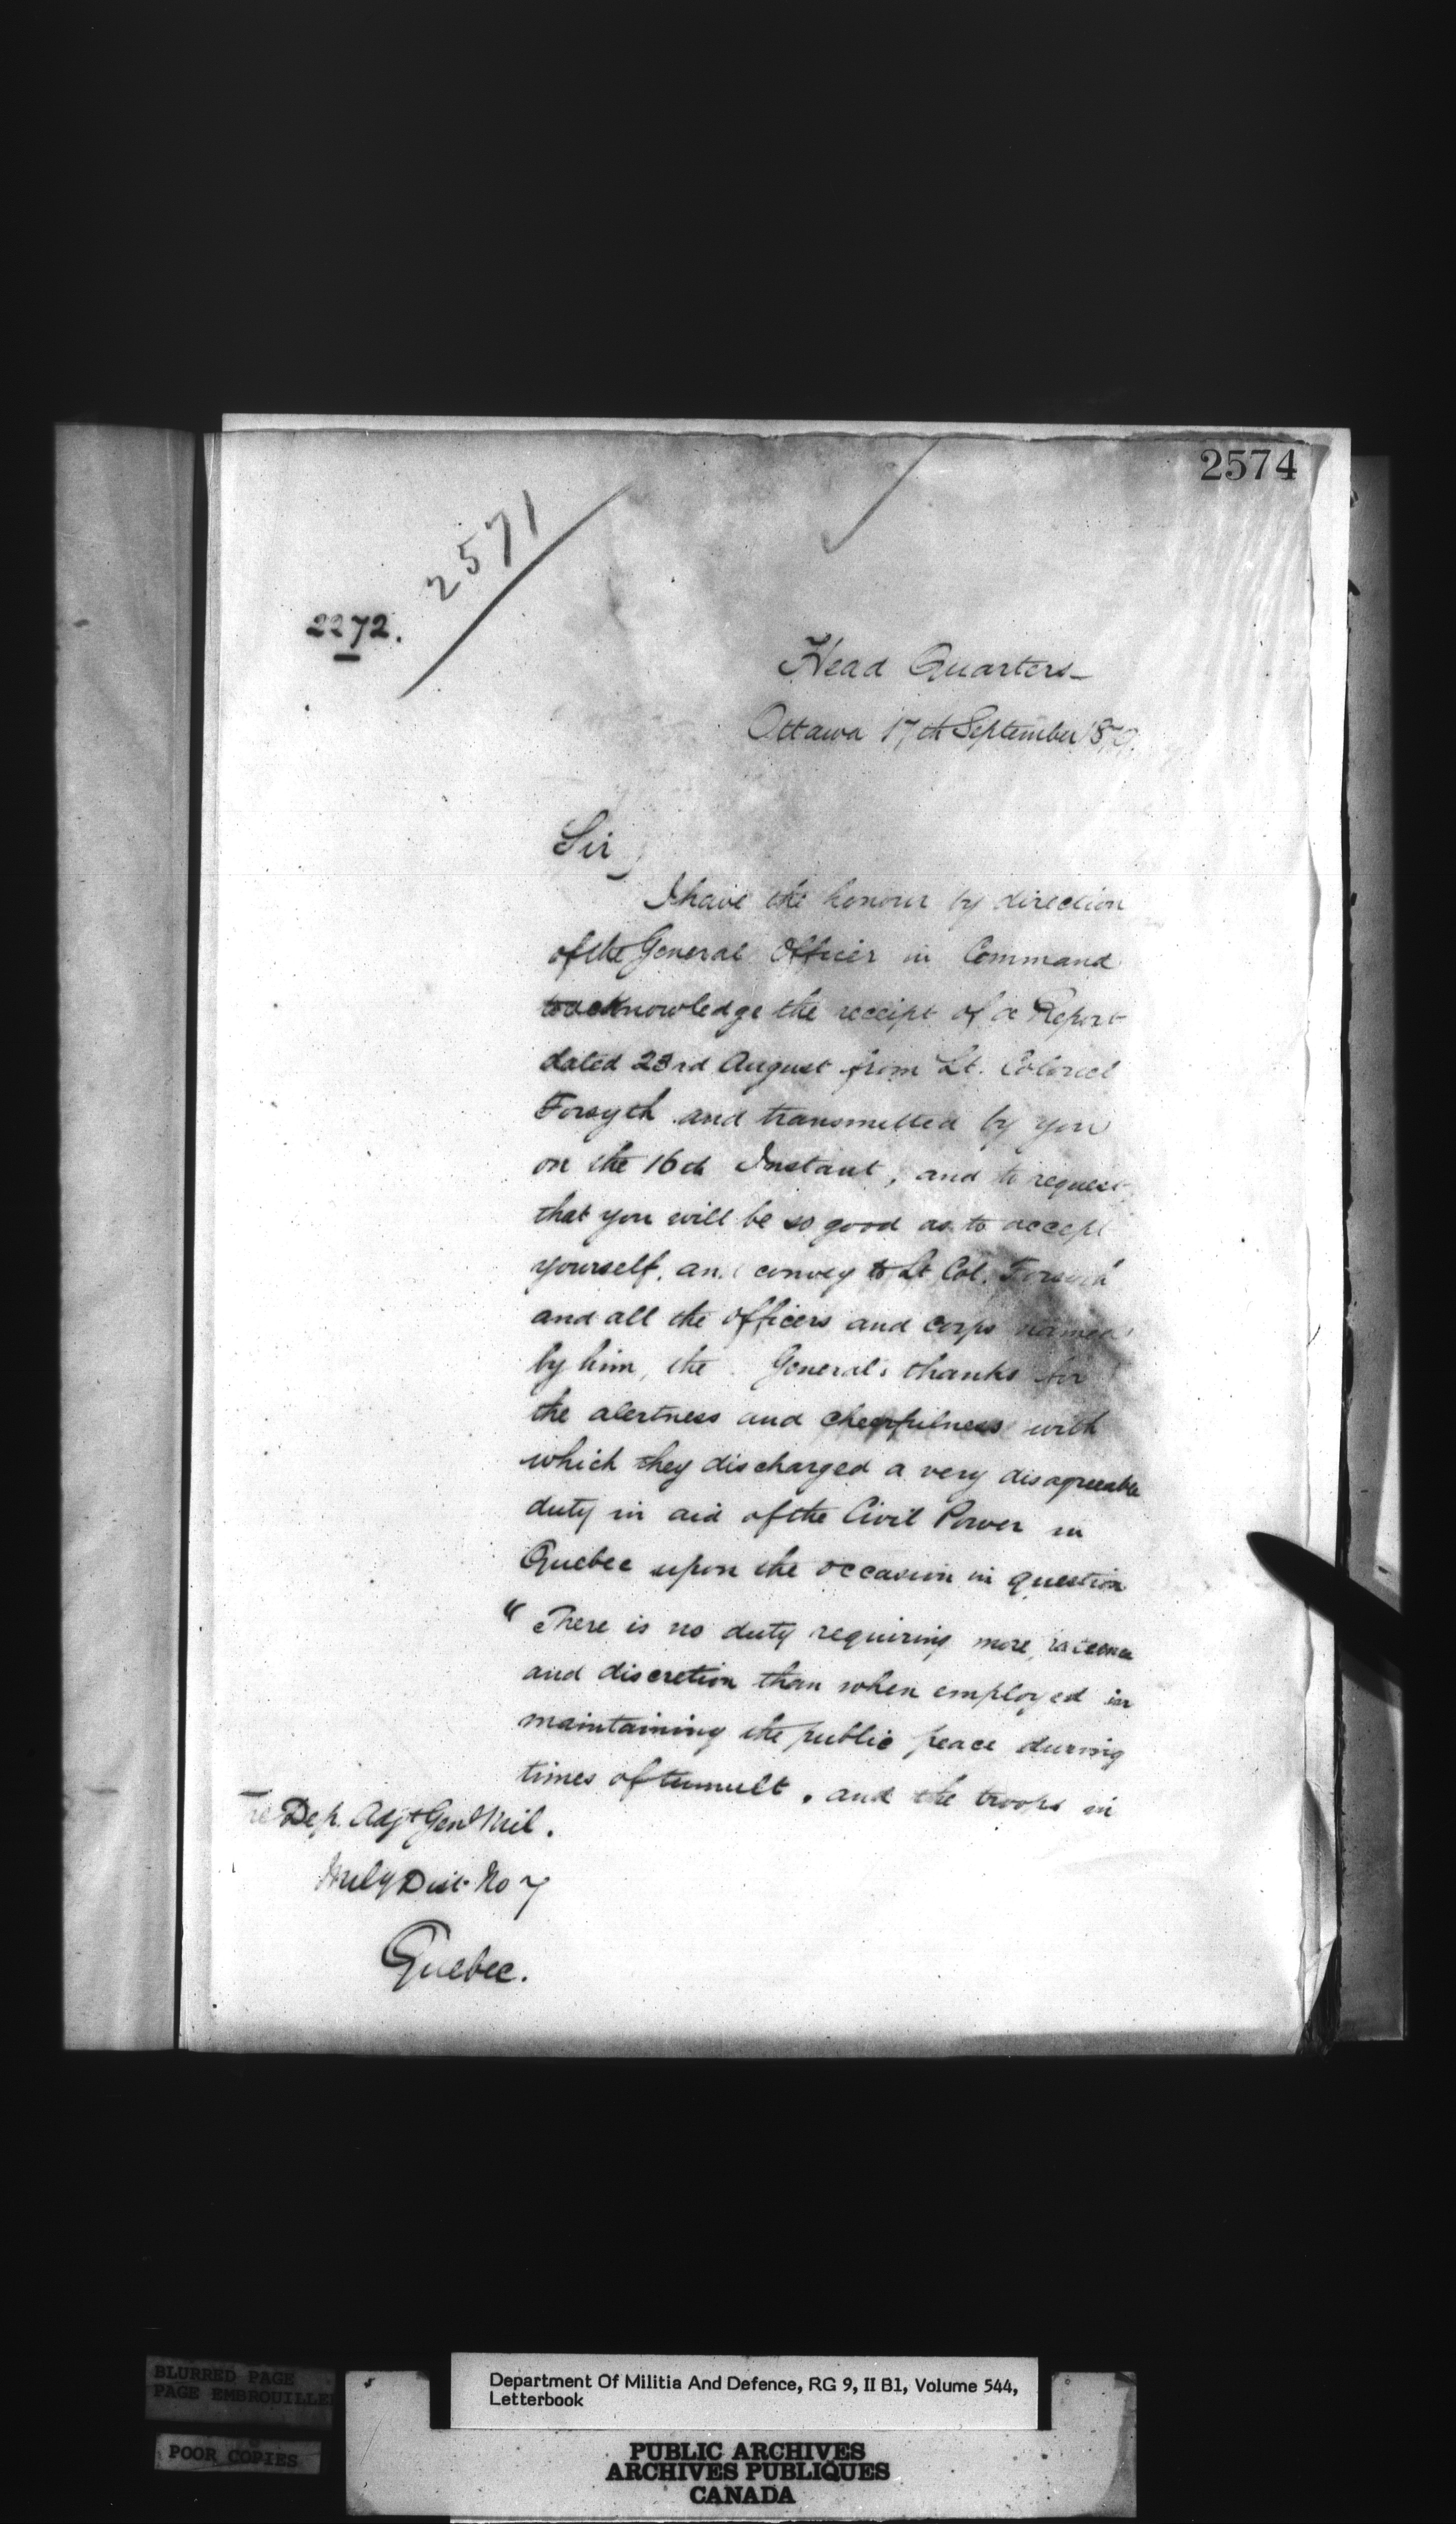 2574
2571
2272.
Head Quarters
Ottawa 17th September
Sir,
I have the honour by direction
of the General Officer in Command
to acknowledge the receipt of a Report
dated 23rd August from Lt. Colonel
Forsyth and transmitted by you
on the 16th Instant, and to request
that you will be so good as to accept
yourself, and convey to Lt Col. Forsyth
and all the officers and corps named
by him, the Generals thanks for
the alertness and cheerfulness with
which they discharged a very disagreeable
duty in aid of the Civil Power in
Quebec upon the occasion in question
"There is no duty requiring more
and discretion than when employed in
maintaining the public peace during
times of tumult, and the troops in
The Dep. Adjt Genl Mil.
Mily Dist. No 7
Quebec.
BLURRED PAGE
PAGE EMBROUILLEE
POOR COPIES
Department Of Militia And Defence, RG 9, II B1, Volume 544,
Letterbook
PUBLIC ARCHIVES
ARCHIVES PUBLIQUES
CANADA